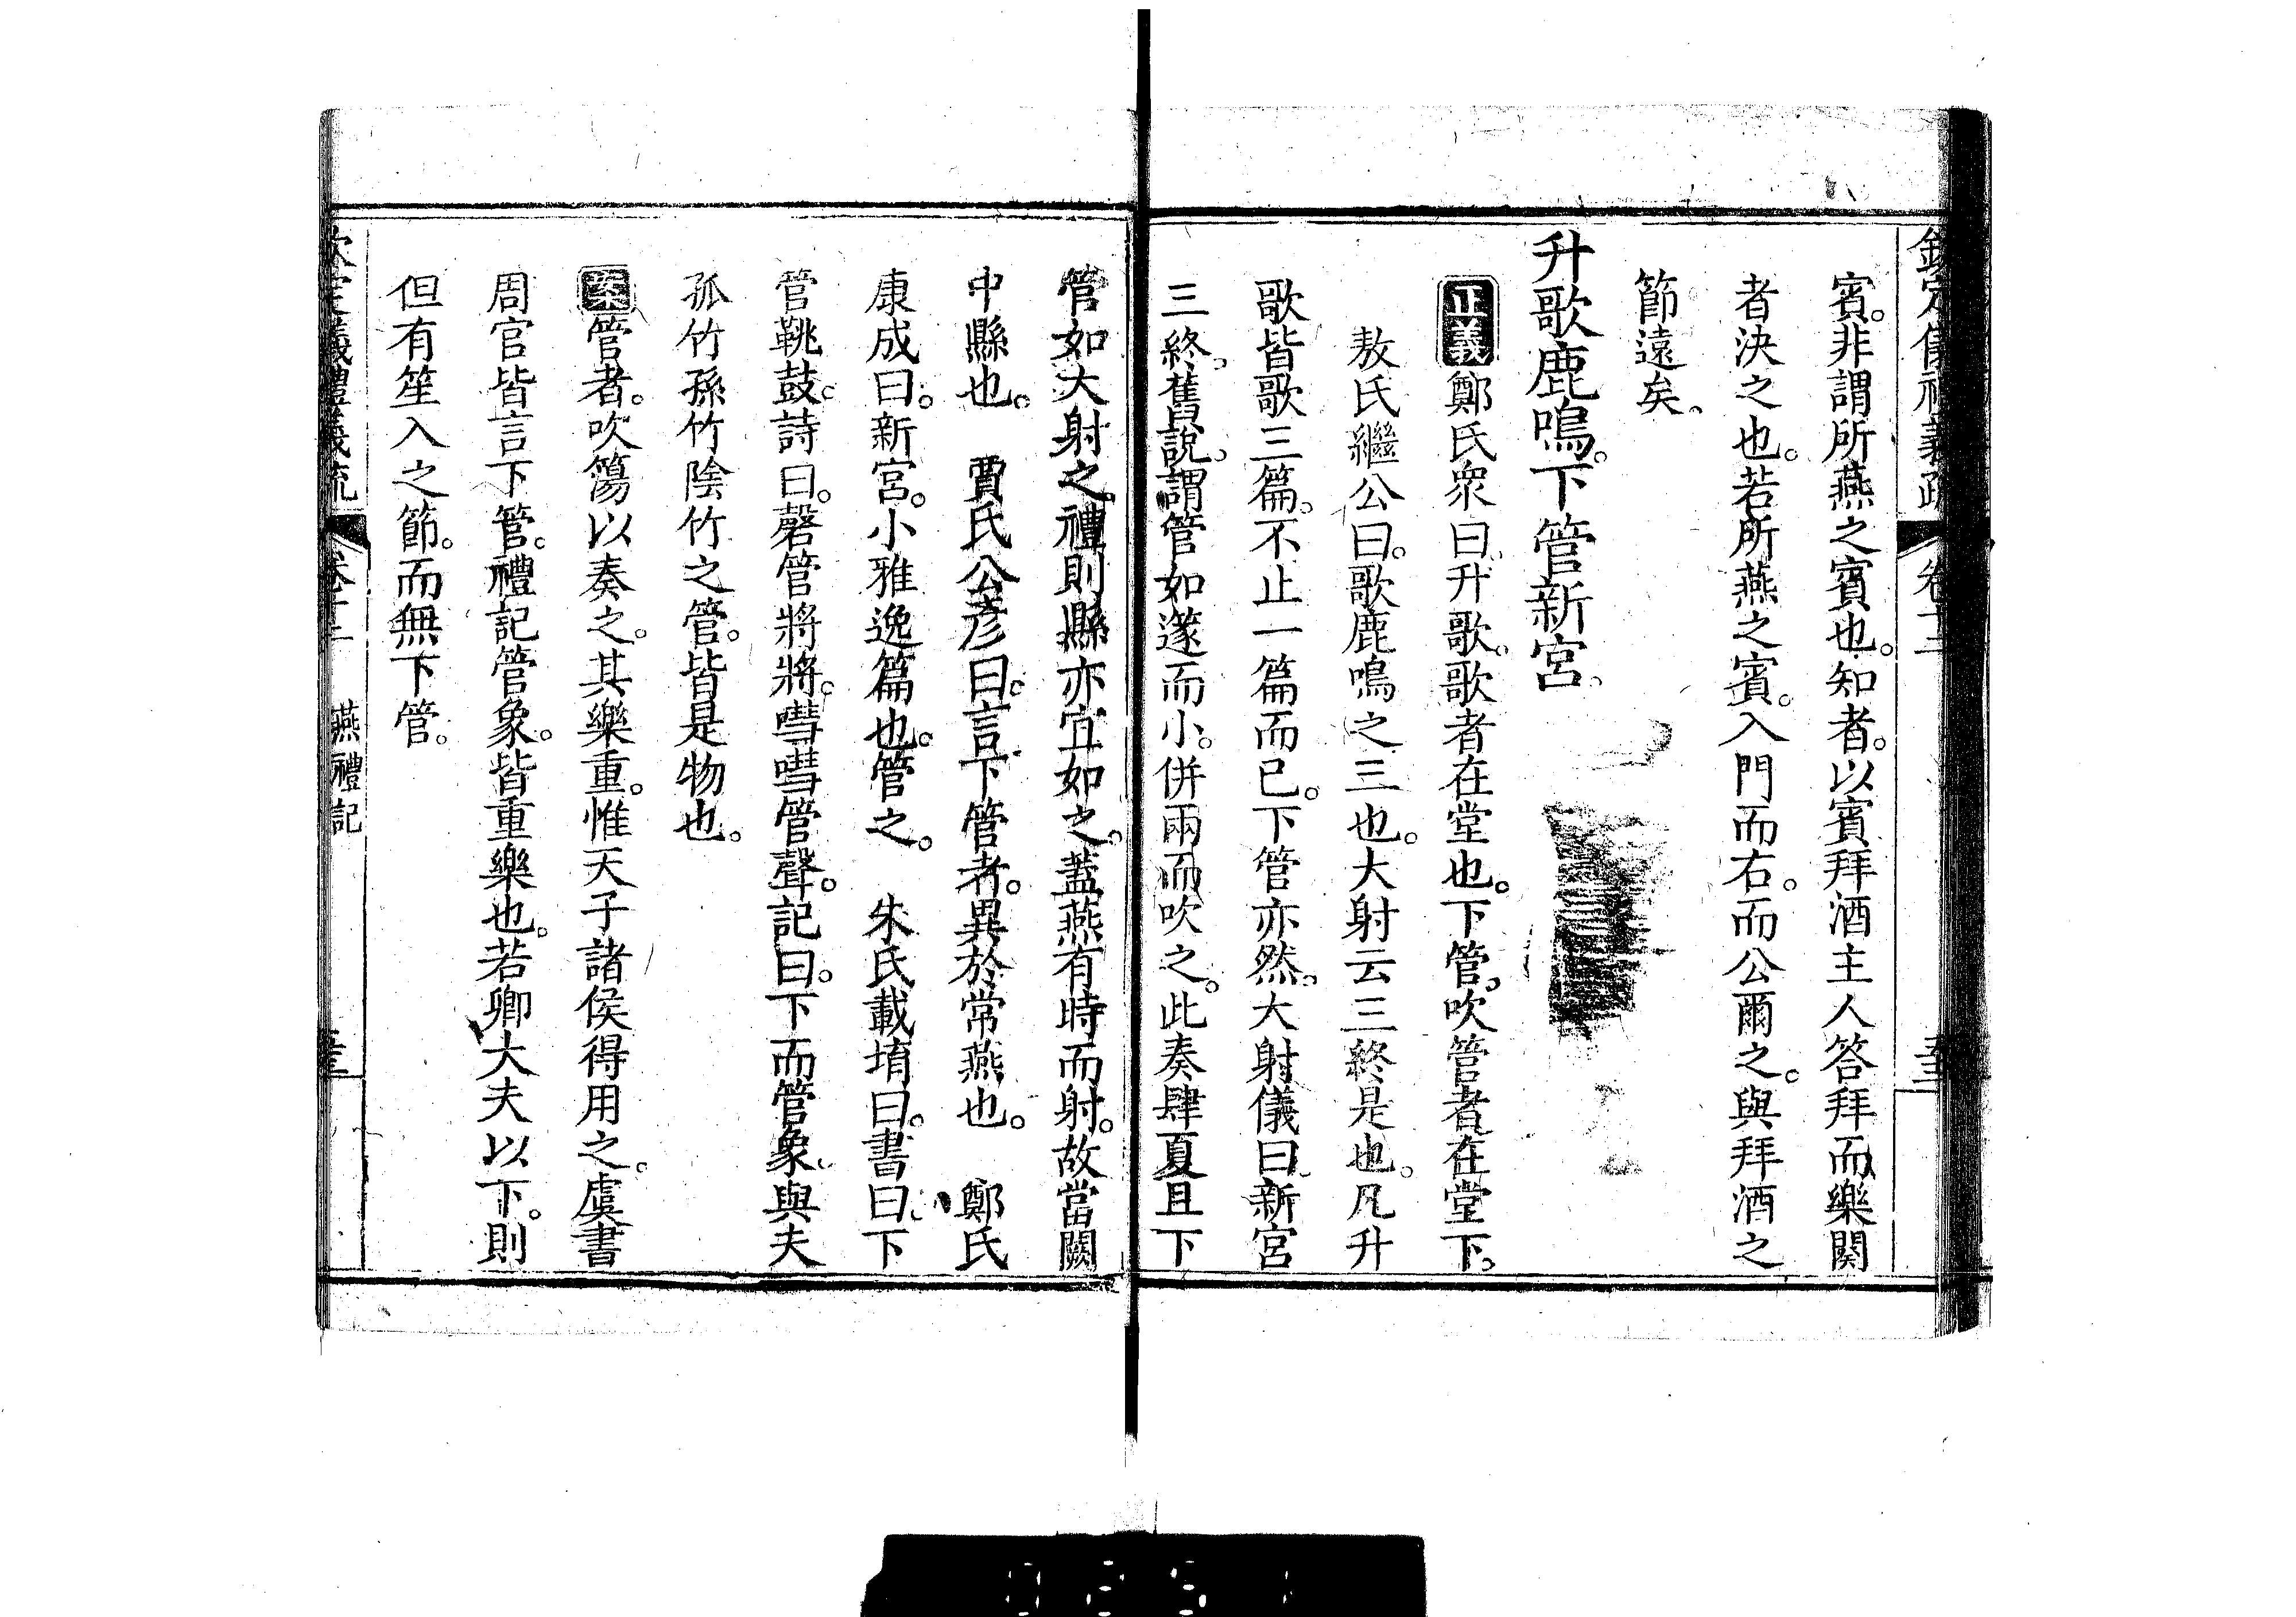 欽定儀禮義疏 卷十二
賓。非謂所燕之賓也。知者。以賓拜酒主人答拜而樂闋
者決之也。若所燕之賓。入門而右。而公爾之。與拜酒之
節遠矣。
升歌鹿鳴。下管新宮。
正義鄭氏衆曰。升歌。歌者在堂也。下管。吹管者在堂下。
敖氏繼公曰。歌鹿鳴之三也。大射云三終是也。凡升
歌皆歌三篇。不止一篇而已。下管亦然。大射儀曰。新宮
三終。舊說。謂管如篴而小。併兩而吹之。此奏肆夏且下
管如大射之禮。則縣亦宜如之。蓋燕有時而射。故當闕
中縣也。 賈氏公彥曰。言下管者。異於常燕也。 鄭氏
康成曰。新宮。小雅逸篇也。管之。 朱氏載堉曰。書曰。下
管鞉鼓。詩曰。磬管將將。嘒嘒管聲。記曰。下而管象。與夫
孤竹孫竹陰竹之管。皆是物也。
案管者。吹簜以奏之。其樂重。惟天子諸侯得用之。虞書
周官皆言下管。禮記管象。皆重樂也。若卿大夫以下。則
但有笙入之節。而無下管。
欽定儀禮義疏 卷十二 燕禮記